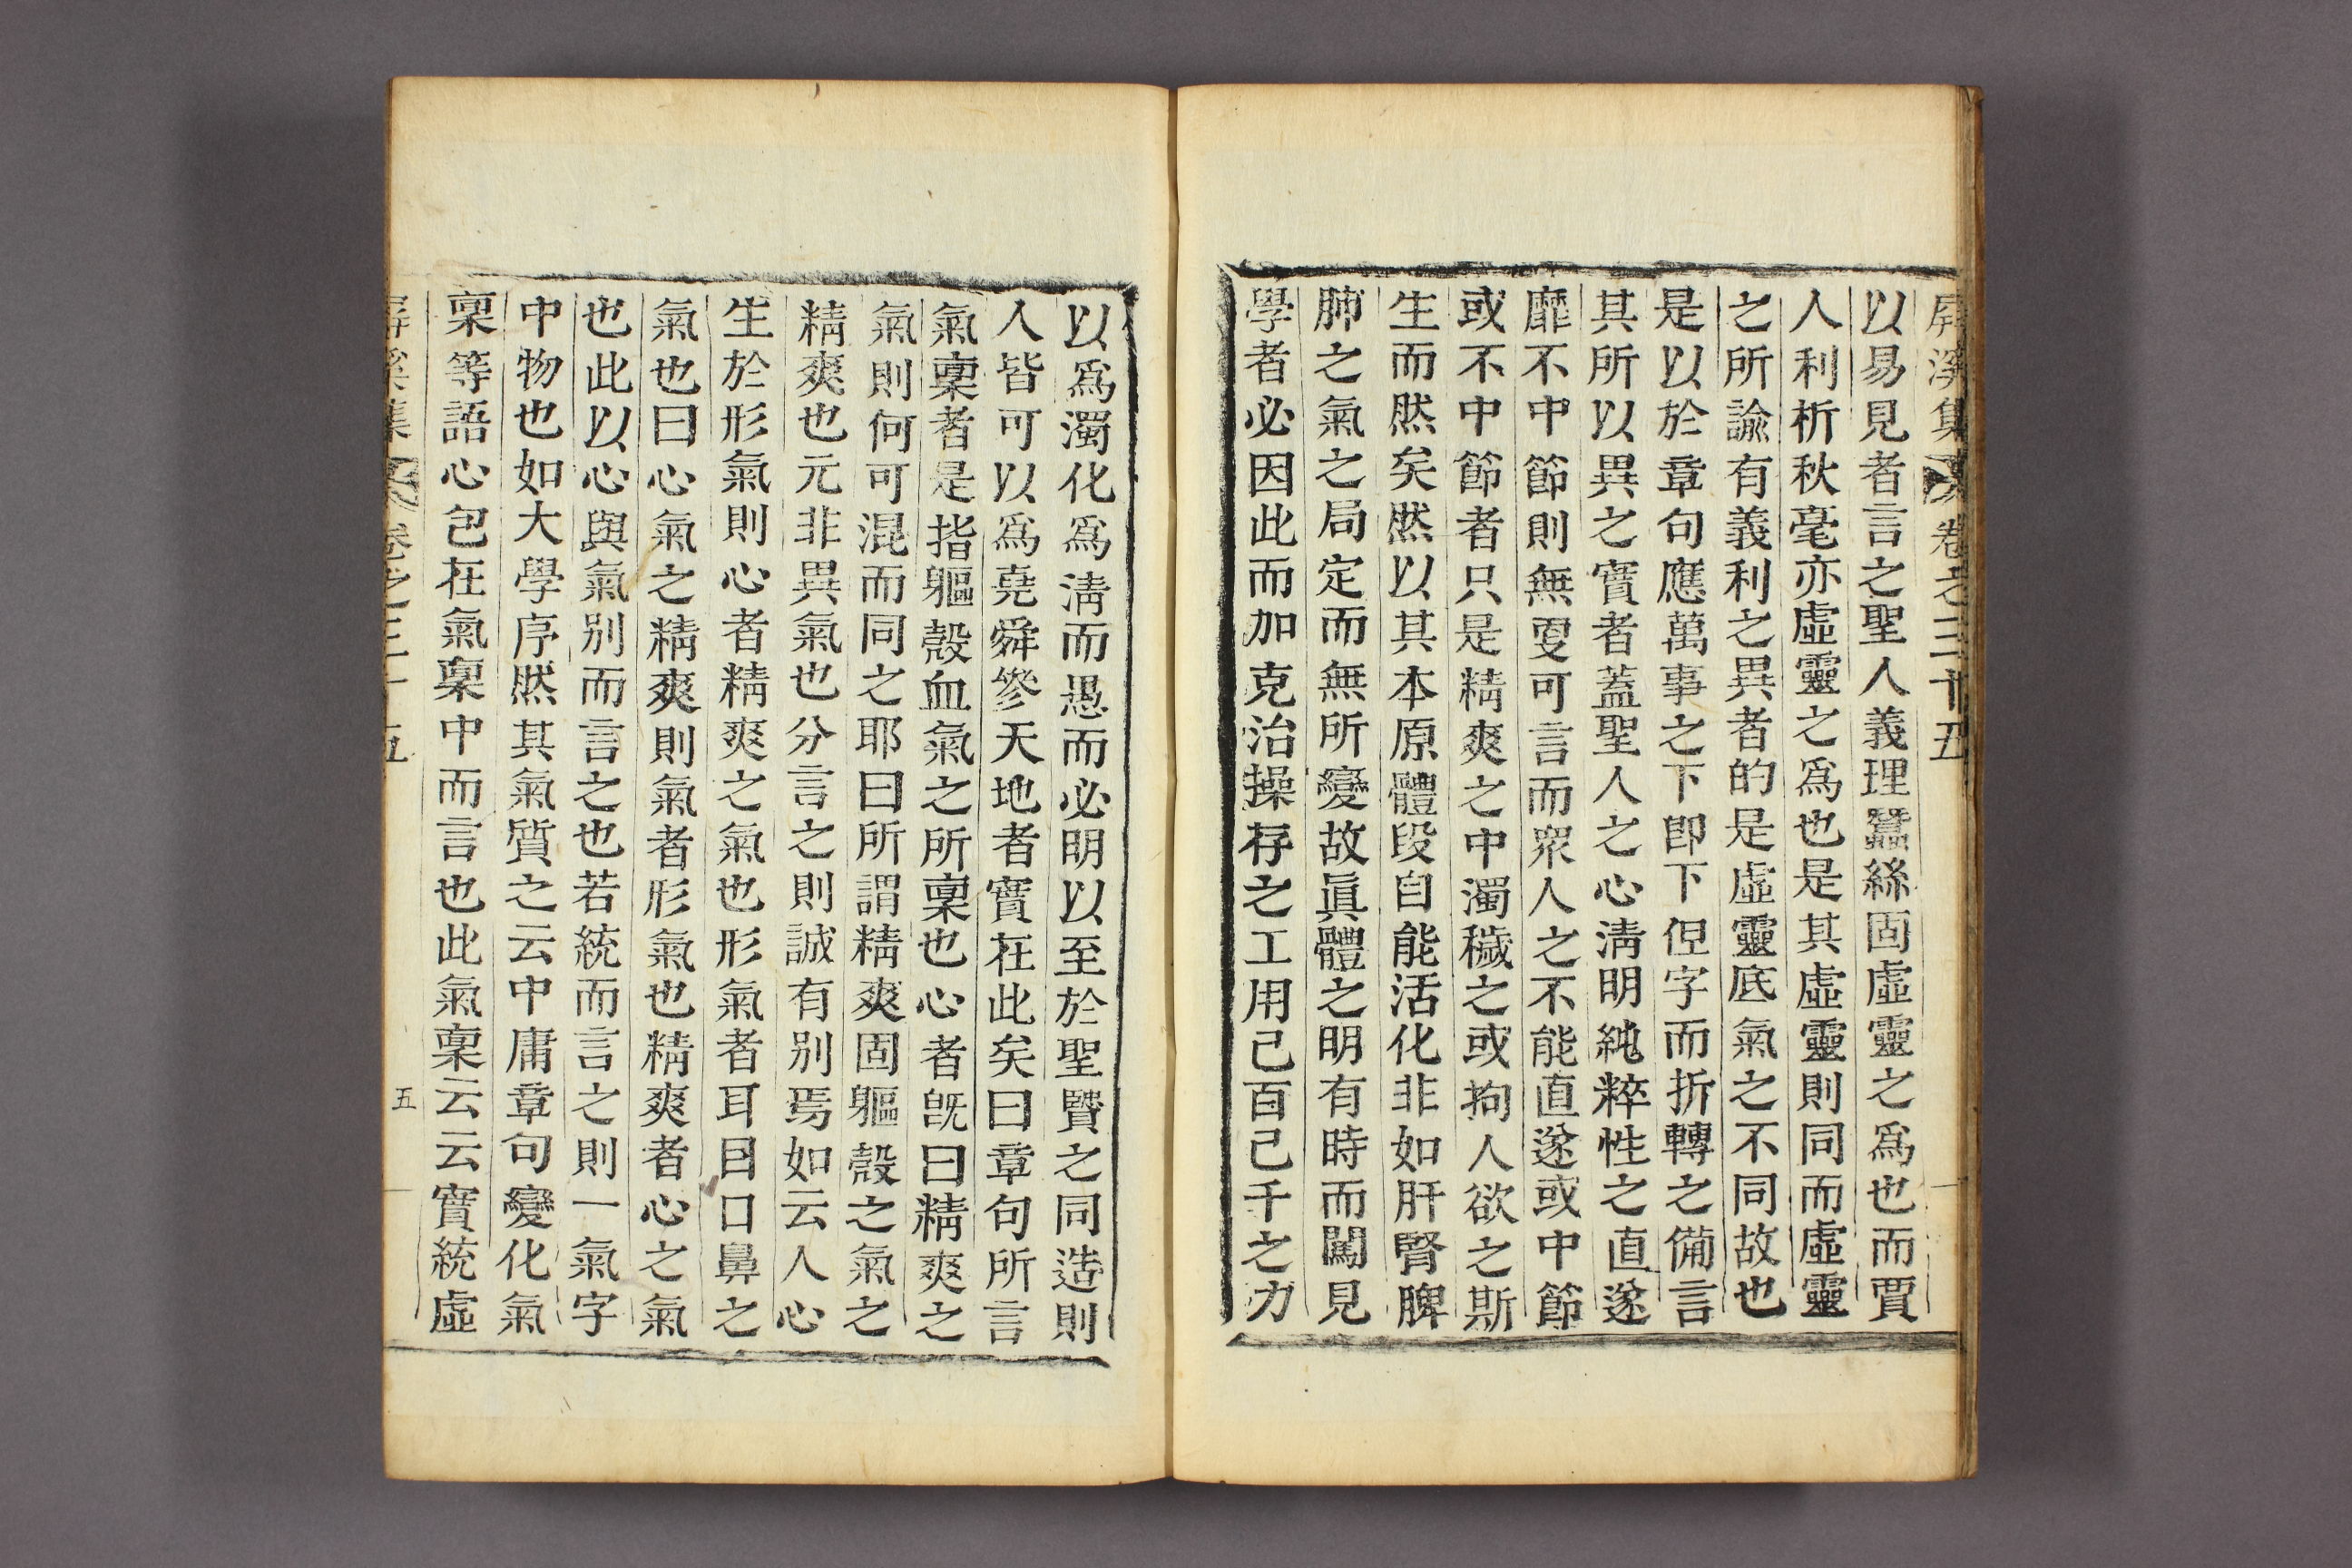 屛溪集 卷之三十五
以易見者言之聖人義理蠶絲固虛靈之爲也而賈
人利析秋毫亦虛靈之爲也是其虛靈則同而虛靈
之所諭有義利之異者的是虛靈底氣之不同故也
是以於章句應萬事之下卽下但字而折轉之備言
其所以異之實者蓋聖人之心淸明純粹性之直遂
靡不中節則無更可言而衆人之不能直遂或中節
或不中節者只是精爽之中濁穢之或拘人欲之斯
生而然矣然以其本原體段自能活化非如肝腎脾
肺之氣之局定而無所變故眞體之明有時而闖見
學者必因此而加克治操存之工用己百己千之力
以爲濁化爲淸而愚而必明以至於聖賢之同造則
人皆可以爲堯舜參天地者實在此矣曰章句所言
氣稟者是指軀殼血氣之所稟也心者旣曰精爽之
氣則何可混而同之耶曰所謂精爽固軀殼之氣之
精爽也元非異氣也分言之則誠有別焉如云人心
生於形氣則心者精爽之氣也形氣者耳目口鼻之
氣也曰心氣之精爽則氣者形氣也精爽者心之氣
也此以心與氣別而言之也若統而言之則一氣字
中物也如大學序然其氣質之云中庸章句變化氣
稟等語心包在氣稟中而言也此氣稟云云實統虛
屛溪集 卷之三十五 五